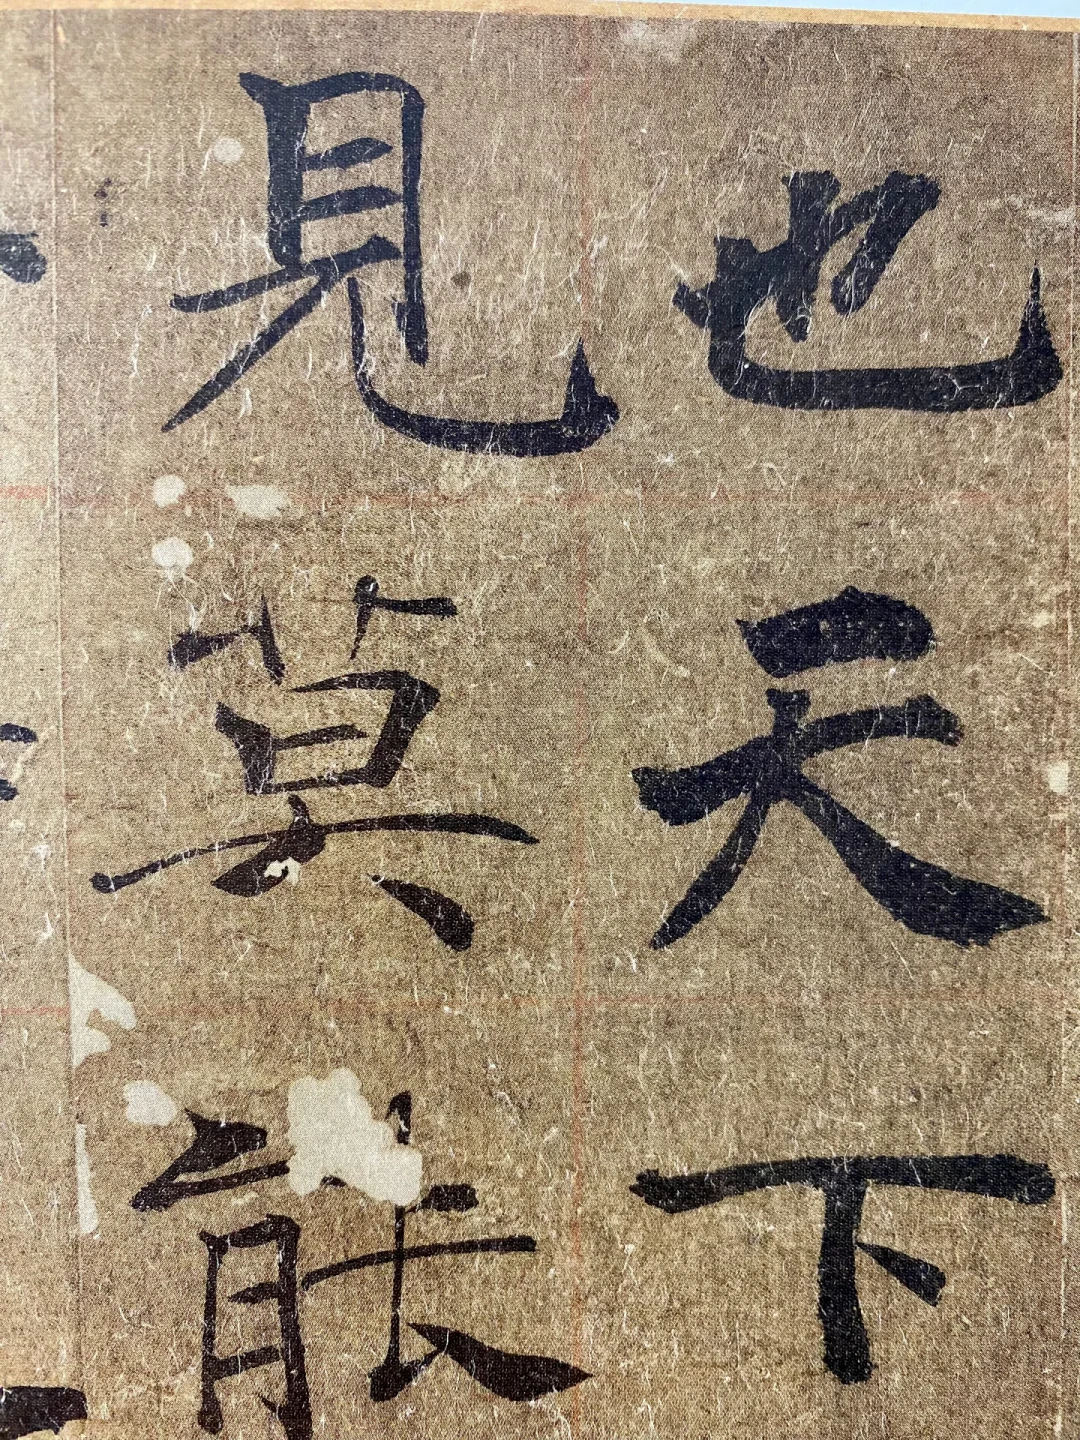 也天下
見莫能